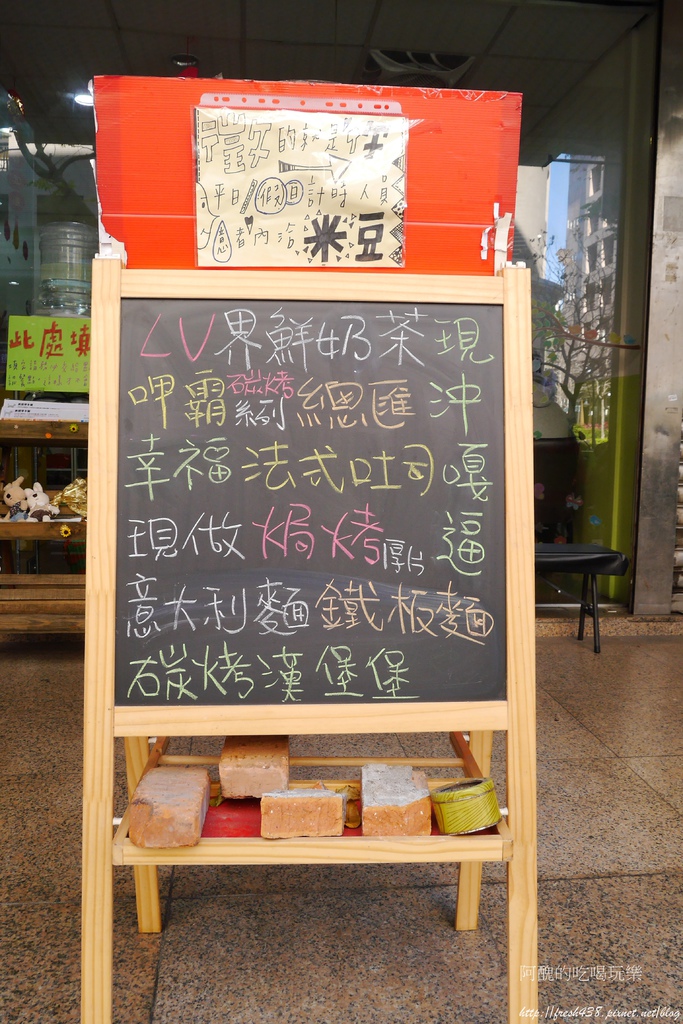 徵的就是你
平日/假日計時人員
意者內洽 米豆
此處填
LV界鮮奶茶
現沖嘎逼
呷霸碳烤系列總匯
幸福法式吐司
現做焗烤厚片
意大利麵 鐵板麵
碳烤漢堡堡
阿醜的吃喝玩樂
http://fresh438.pixnet.net/blog